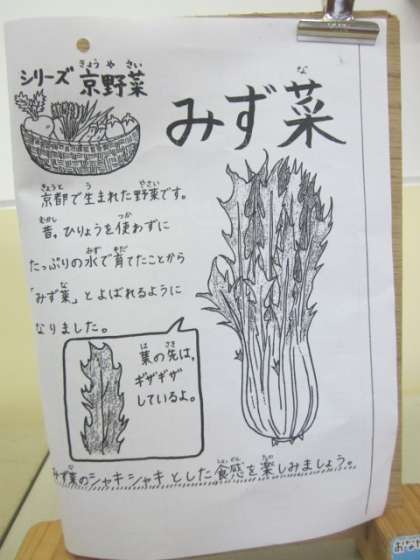 シリーズ 京野菜
みず菜
京都で生まれた野菜です。
昔。ひりょうを使わずに
たっぷりの水で育てたことから
「みず菜」とよばれるように
なりました。
葉の先は、
ギザギザ
しているよ。
みず菜のシャキシャキとした食感を楽しみましょう。